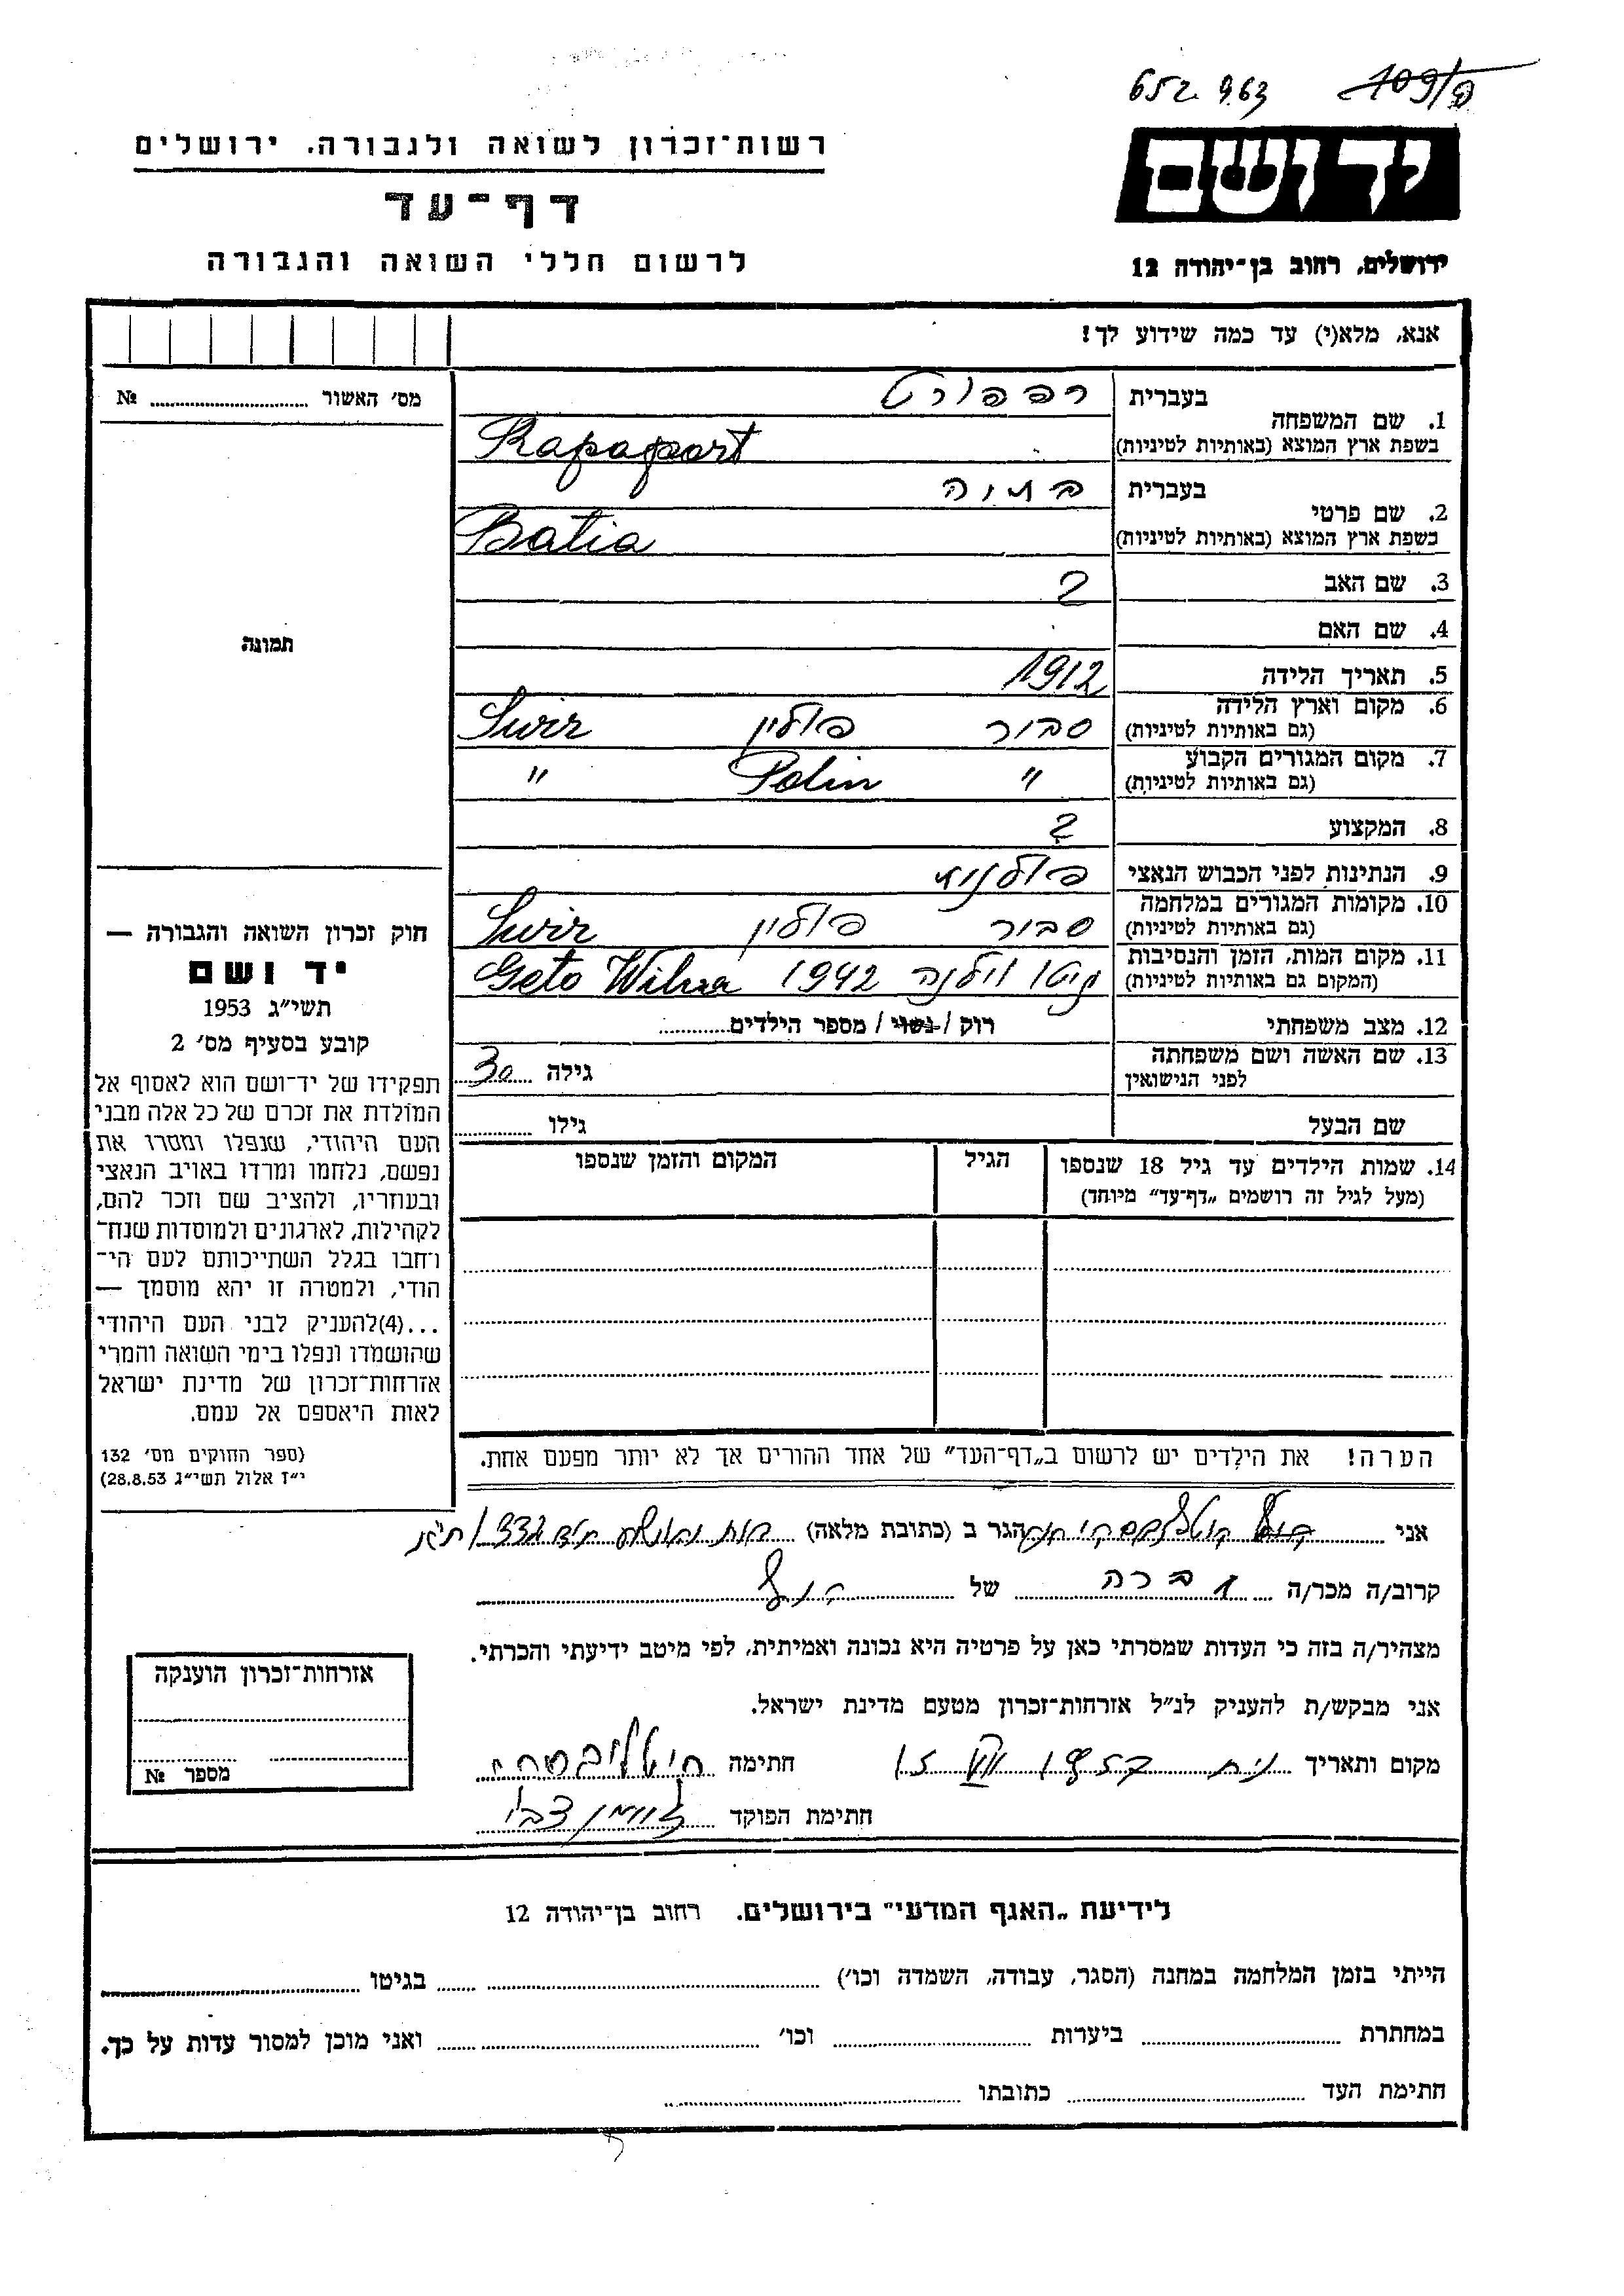 652 963
109/פ
רשות־זכרון לשואה ולגבורה. ירושלים
יד ושם
דף־עד
לרשום חללי השואה והגבורה
ירושלים, רחוב בן־יהודה 12
אנא, מלא(י) עד כמה שידוע לך!
מס׳ האשור № ........
בעברית רפפורט
1. שם המשפחה
בשפת ארץ המוצא (באותיות לטיניות) Rapaport
בעברית בתיה
2. שם פרטי
בשפת ארץ המוצא (באותיות לטיניות) Batia
3. שם האב ?
4. שם האם
5. תאריך הלידה 1912
6. מקום וארץ הלידה
(גם באותיות לטיניות) סביר פולין Swir
7. מקום המגורים הקבוע
(גם באותיות לטיניות) " Polin "
8. המקצוע ?
9. הנתינות לפני הכבוש הנאצי פולנית
10. מקומות המגורים במלחמה
(גם באותיות לטיניות) סביר פולין Swir
11. מקום המות, הזמן והנסיבות
(המקום גם באותיות לטיניות) גיטו וילנה 1942 Geto Wilna
12. מצב משפחתי רוק / נשוי / מספר הילדים........
13. שם האשה ושם משפחתה
לפני הנישואין גילה 30
שם הבעל גילו ........
14. שמות הילדים עד גיל 18 שנספו הגיל המקום והזמן שנספו
(מעל לגיל זה רושמים „דף־עד” מיוחד)
הערה! את הילדים יש לרשום ב„דף־העד” של אחד ההורים אך לא יותר מפעם אחת.
תמונה
חוק זכרון השואה והגבורה —
יד ושם
תשי״ג 1953
קובע בסעיף מס׳ 2
תפקידו של יד־ושם הוא לאסוף אל
המולדת את זכרם של כל אלה מבני
העם היהודי, שנפלו ומסרו את
נפשם, נלחמו ומרדו באויב הנאצי
ובעוזריו, ולהציב שם וזכר להם,
לקהילות, לארגונים ולמוסדות שנח־
רבו בגלל השתייכותם לעם הי־
הודי, ולמטרה זו יהא מוסמך —
...(4)להעניק לבני העם היהודי
שהושמדו ונפלו בימי השואה והמרי
אזרחות־זכרון של מדינת ישראל
לאות היאספם אל עמם.
(ספר החוקים מס׳ 132
י״ז אלול תשי״ג 28.8.53)
אני ........ הגר ב (כתובת מלאה) ........
קרוב/ה מכר/ה חברה של ........
מצהיר/ה בזה כי העדות שמסרתי כאן על פרטיה היא נכונה ואמיתית, לפי מיטב ידיעתי והכרתי.
אני מבקש/ת להעניק לנ״ל אזרחות־זכרון מטעם מדינת ישראל.
מקום ותאריך ........ חתימה ........
חתימת הפוקד ........
אזרחות־זכרון הוענקה
מספר №
לידיעת „האגף המדעי” בירושלים. רחוב בן־יהודה 12
הייתי בזמן המלחמה במחנה (הסגר, עבודה, השמדה וכו׳) ........ בגיטו ........
במחתרת ........ ביערות ........ וכו׳ ........ ואני מוכן למסור עדות על כך.
חתימת העד ........ כתובתו ........